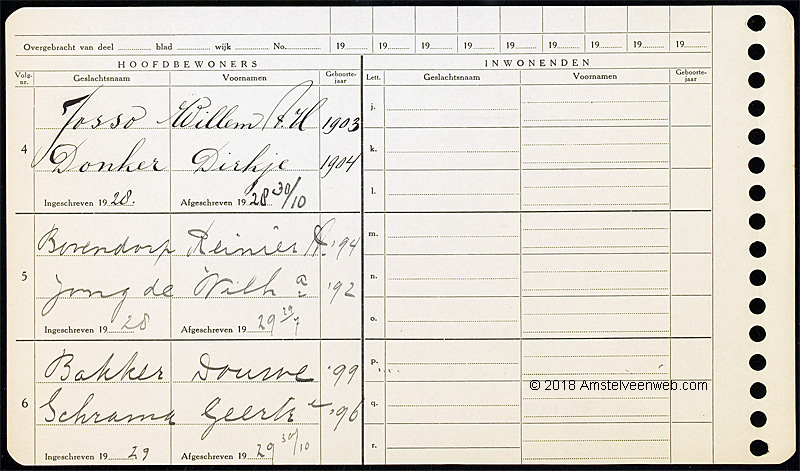 Overgebracht van deel ........ blad ........ wijk ........ No. ........ 19 19 19 19 19 19 19 19 19
HOOFDBEWONERS INWONENDEN
Volg-nr. Geslachtsnaam Voornamen Geboorte-jaar Lett. Geslachtsnaam Voornamen Geboorte-jaar
Josso Willem A.H 1903 j.
4 k.
Donker Dirkje 1904
Ingeschreven 19 28. Afgeschreven 19 28 30/10 l.
Bovendorp Reinier A. '94 m.
5 n.
Jong de Wilh a '92
Ingeschreven 19 28 Afgeschreven 19 29 29/7 o.
Bakker Douwe '99 p.
© 2018 Amstelveenweb.com
6 Schrama Geertr e '96 q.
Ingeschreven 19 29 Afgeschreven 19 29 30/10 r.